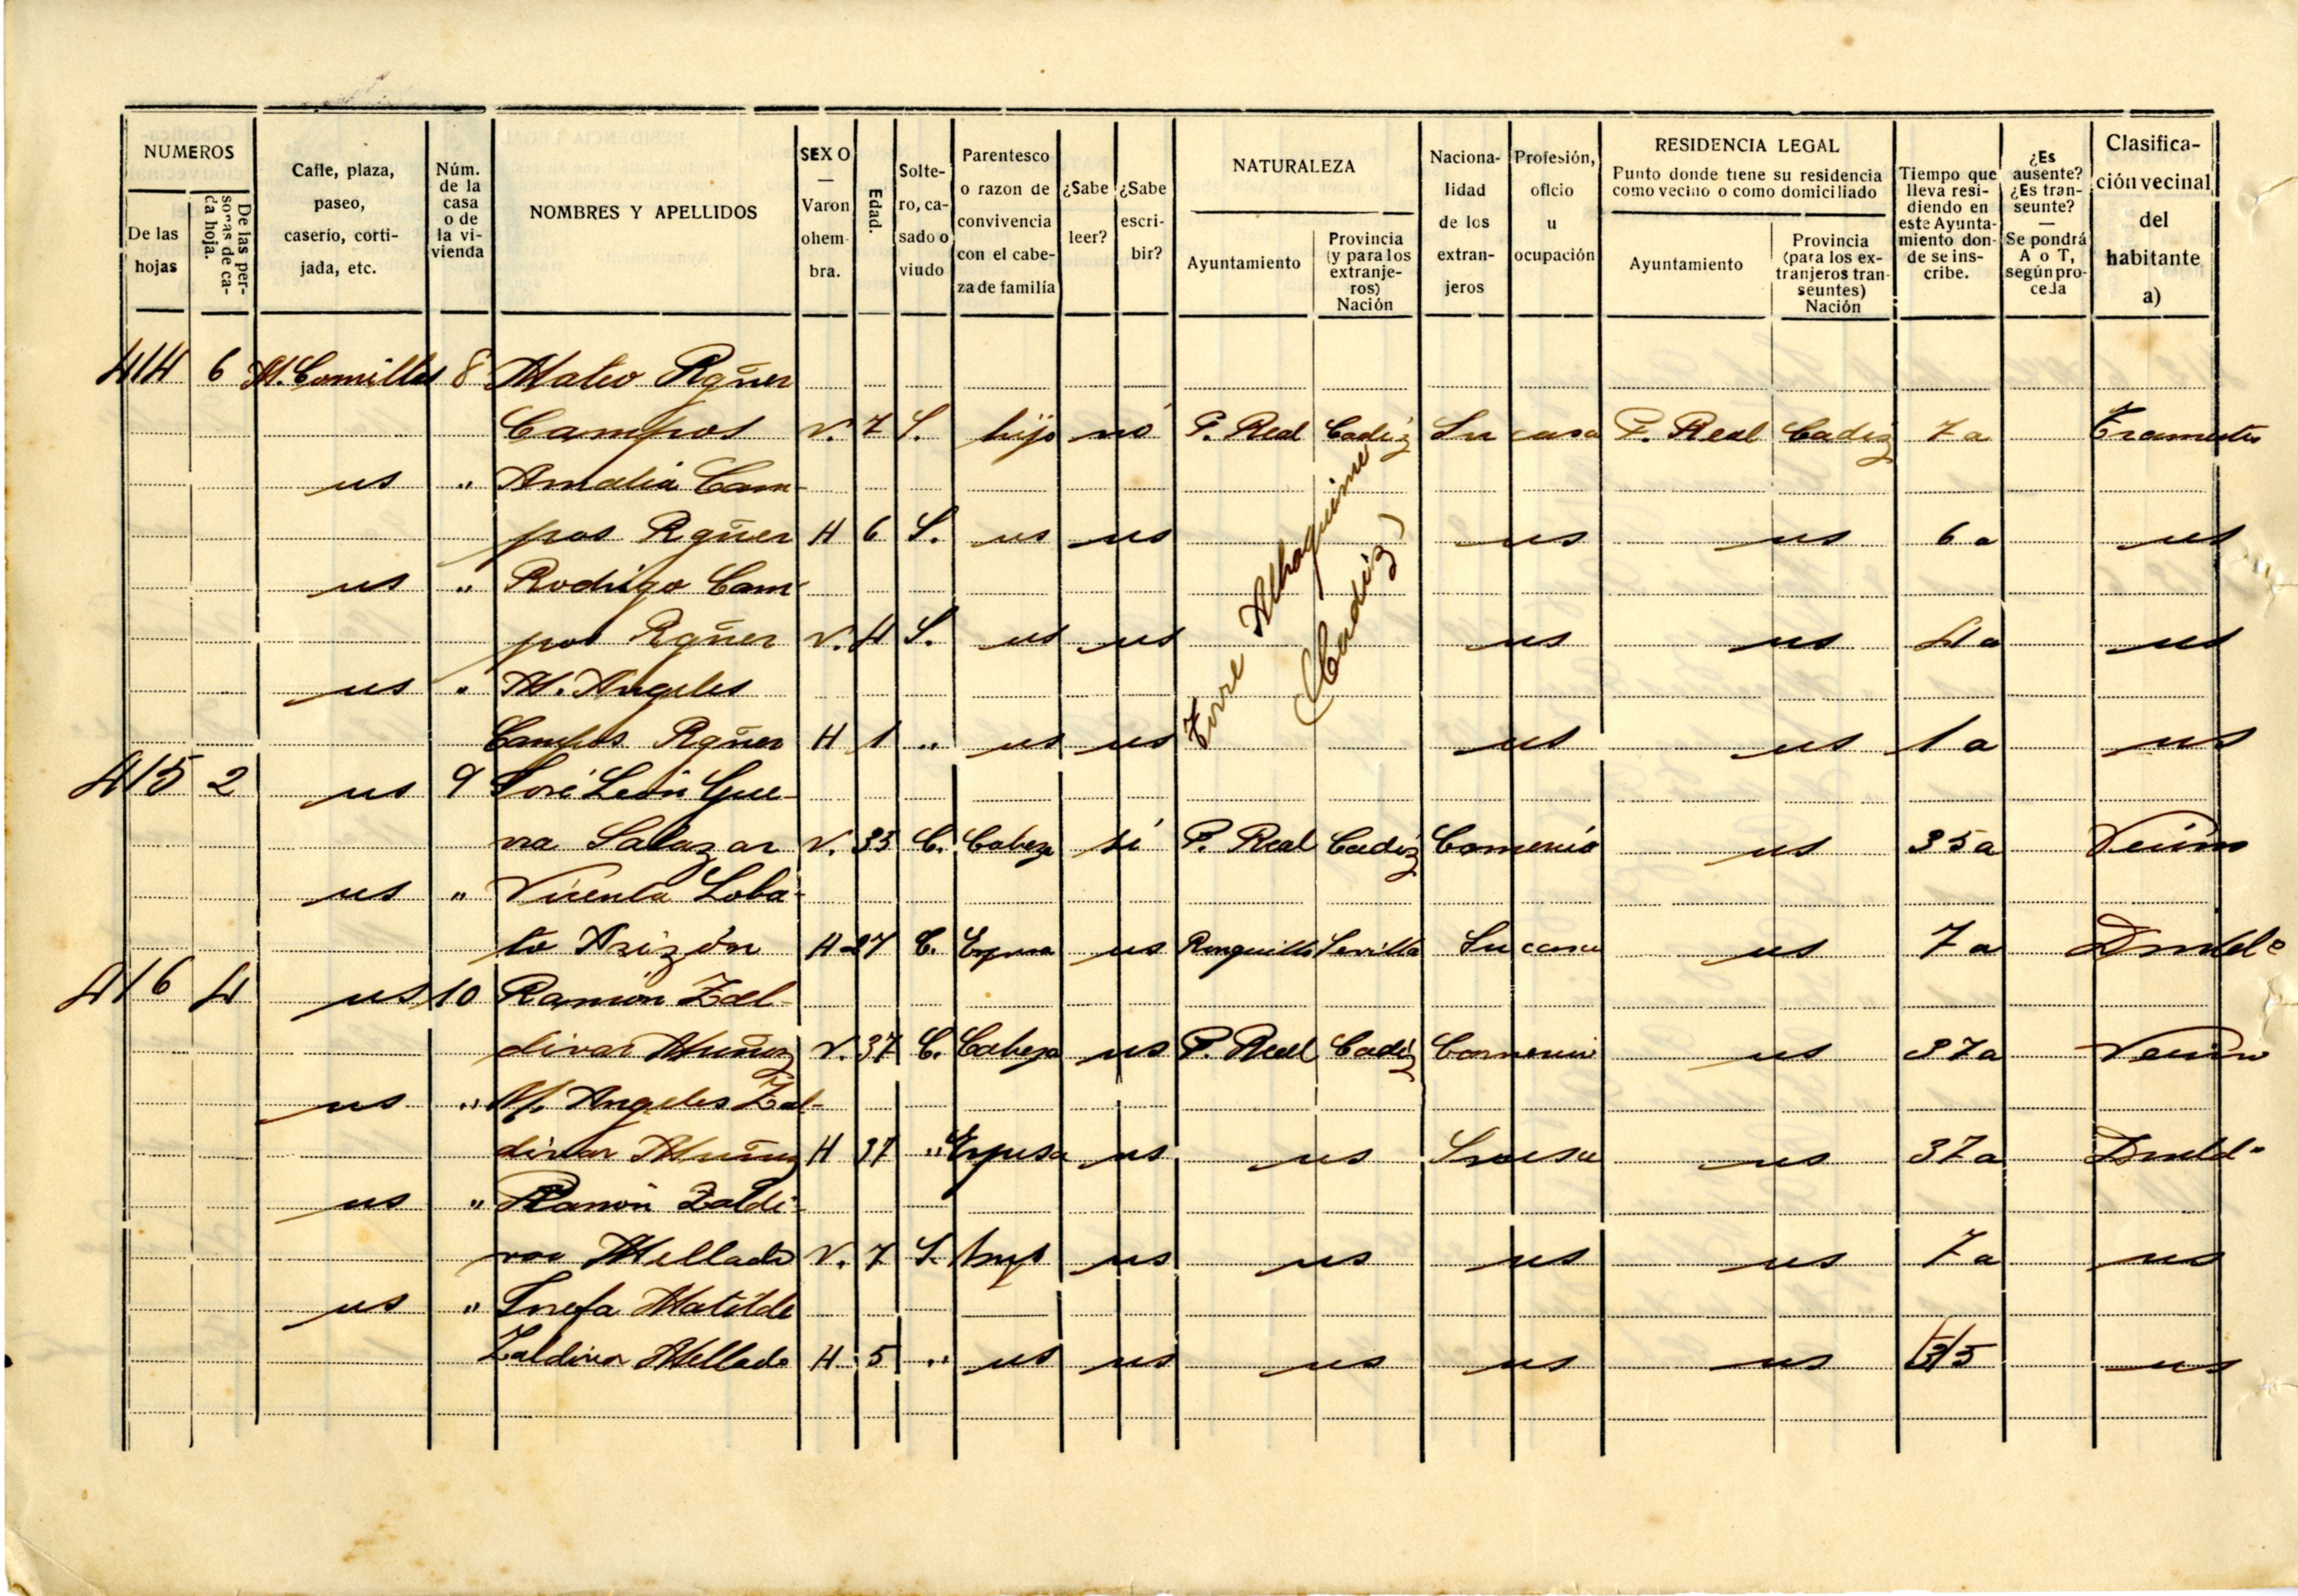 NUMEROS
De las hojas
De las personas de cada hoja.
Calle, plaza, paseo, caserío, cortijada, etc.
Núm. de la casa o de la vivienda
NOMBRES Y APELLIDOS
SEXO — Varon o hembra.
Edad.
Soltero, casado o viudo
Parentesco o razon de convivencia con el cabeza de familia
¿Sabe leer?
¿Sabe escribir?
NATURALEZA
Ayuntamiento
Provincia (y para los extranjeros) Nación
Nacionalidad de los extranjeros
Profesión, oficio u ocupación
RESIDENCIA LEGAL
Punto donde tiene su residencia como vecino o como domiciliado
Ayuntamiento
Provincia (para los extranjeros transeuntes) Nación
Tiempo que lleva residiendo en este Ayuntamiento donde se inscribe.
¿Es ausente? ¿Es transeunte? — Se pondrá A o T, según proceda
Clasificación vecinal del habitante a)
414 6 M. Comillas 8 Mateo Rgñez
Campos V. 7 S. hijo no P. Real Cadiz Su casa P. Real Cadiz 7 a
us " Amalia Cam-
pos Rgñez H 6 S. us us us us 6 a us
us " Rodrigo Cam-
pos Rgñez V. 4 S. us us us us 4 a us
us " M. Angeles
Campos Rgñez H 1 " us us us us 1 a us
Torre Alhaquime
(Cadiz)
415 2 us 9 José León Gue-
rra Salazar V. 35 C. Cabeza si P. Real Cadiz Comercio us 35 a Vecino
us " Vicenta Loba-
to Arizón H 27 C. Esposa us Ronquillo Sevilla Su casa us 7 a Dmcldo
416 4 us 10 Ramón Zal-
divar Muñoz V. 37 C. Cabeza us P. Real Cadiz Comercio us 37 a Vecino
us " M. Angeles Zal-
divar Muñoz H 37 " Esposa us us Su casa us 37 a Dmcldo
us " Ramón Zaldi-
var Mellado V. 7 S. hijo us us us us 7 a us
us " Josefa Matilde
Zaldivar Mellado H. 5 " us us us us us 5 us